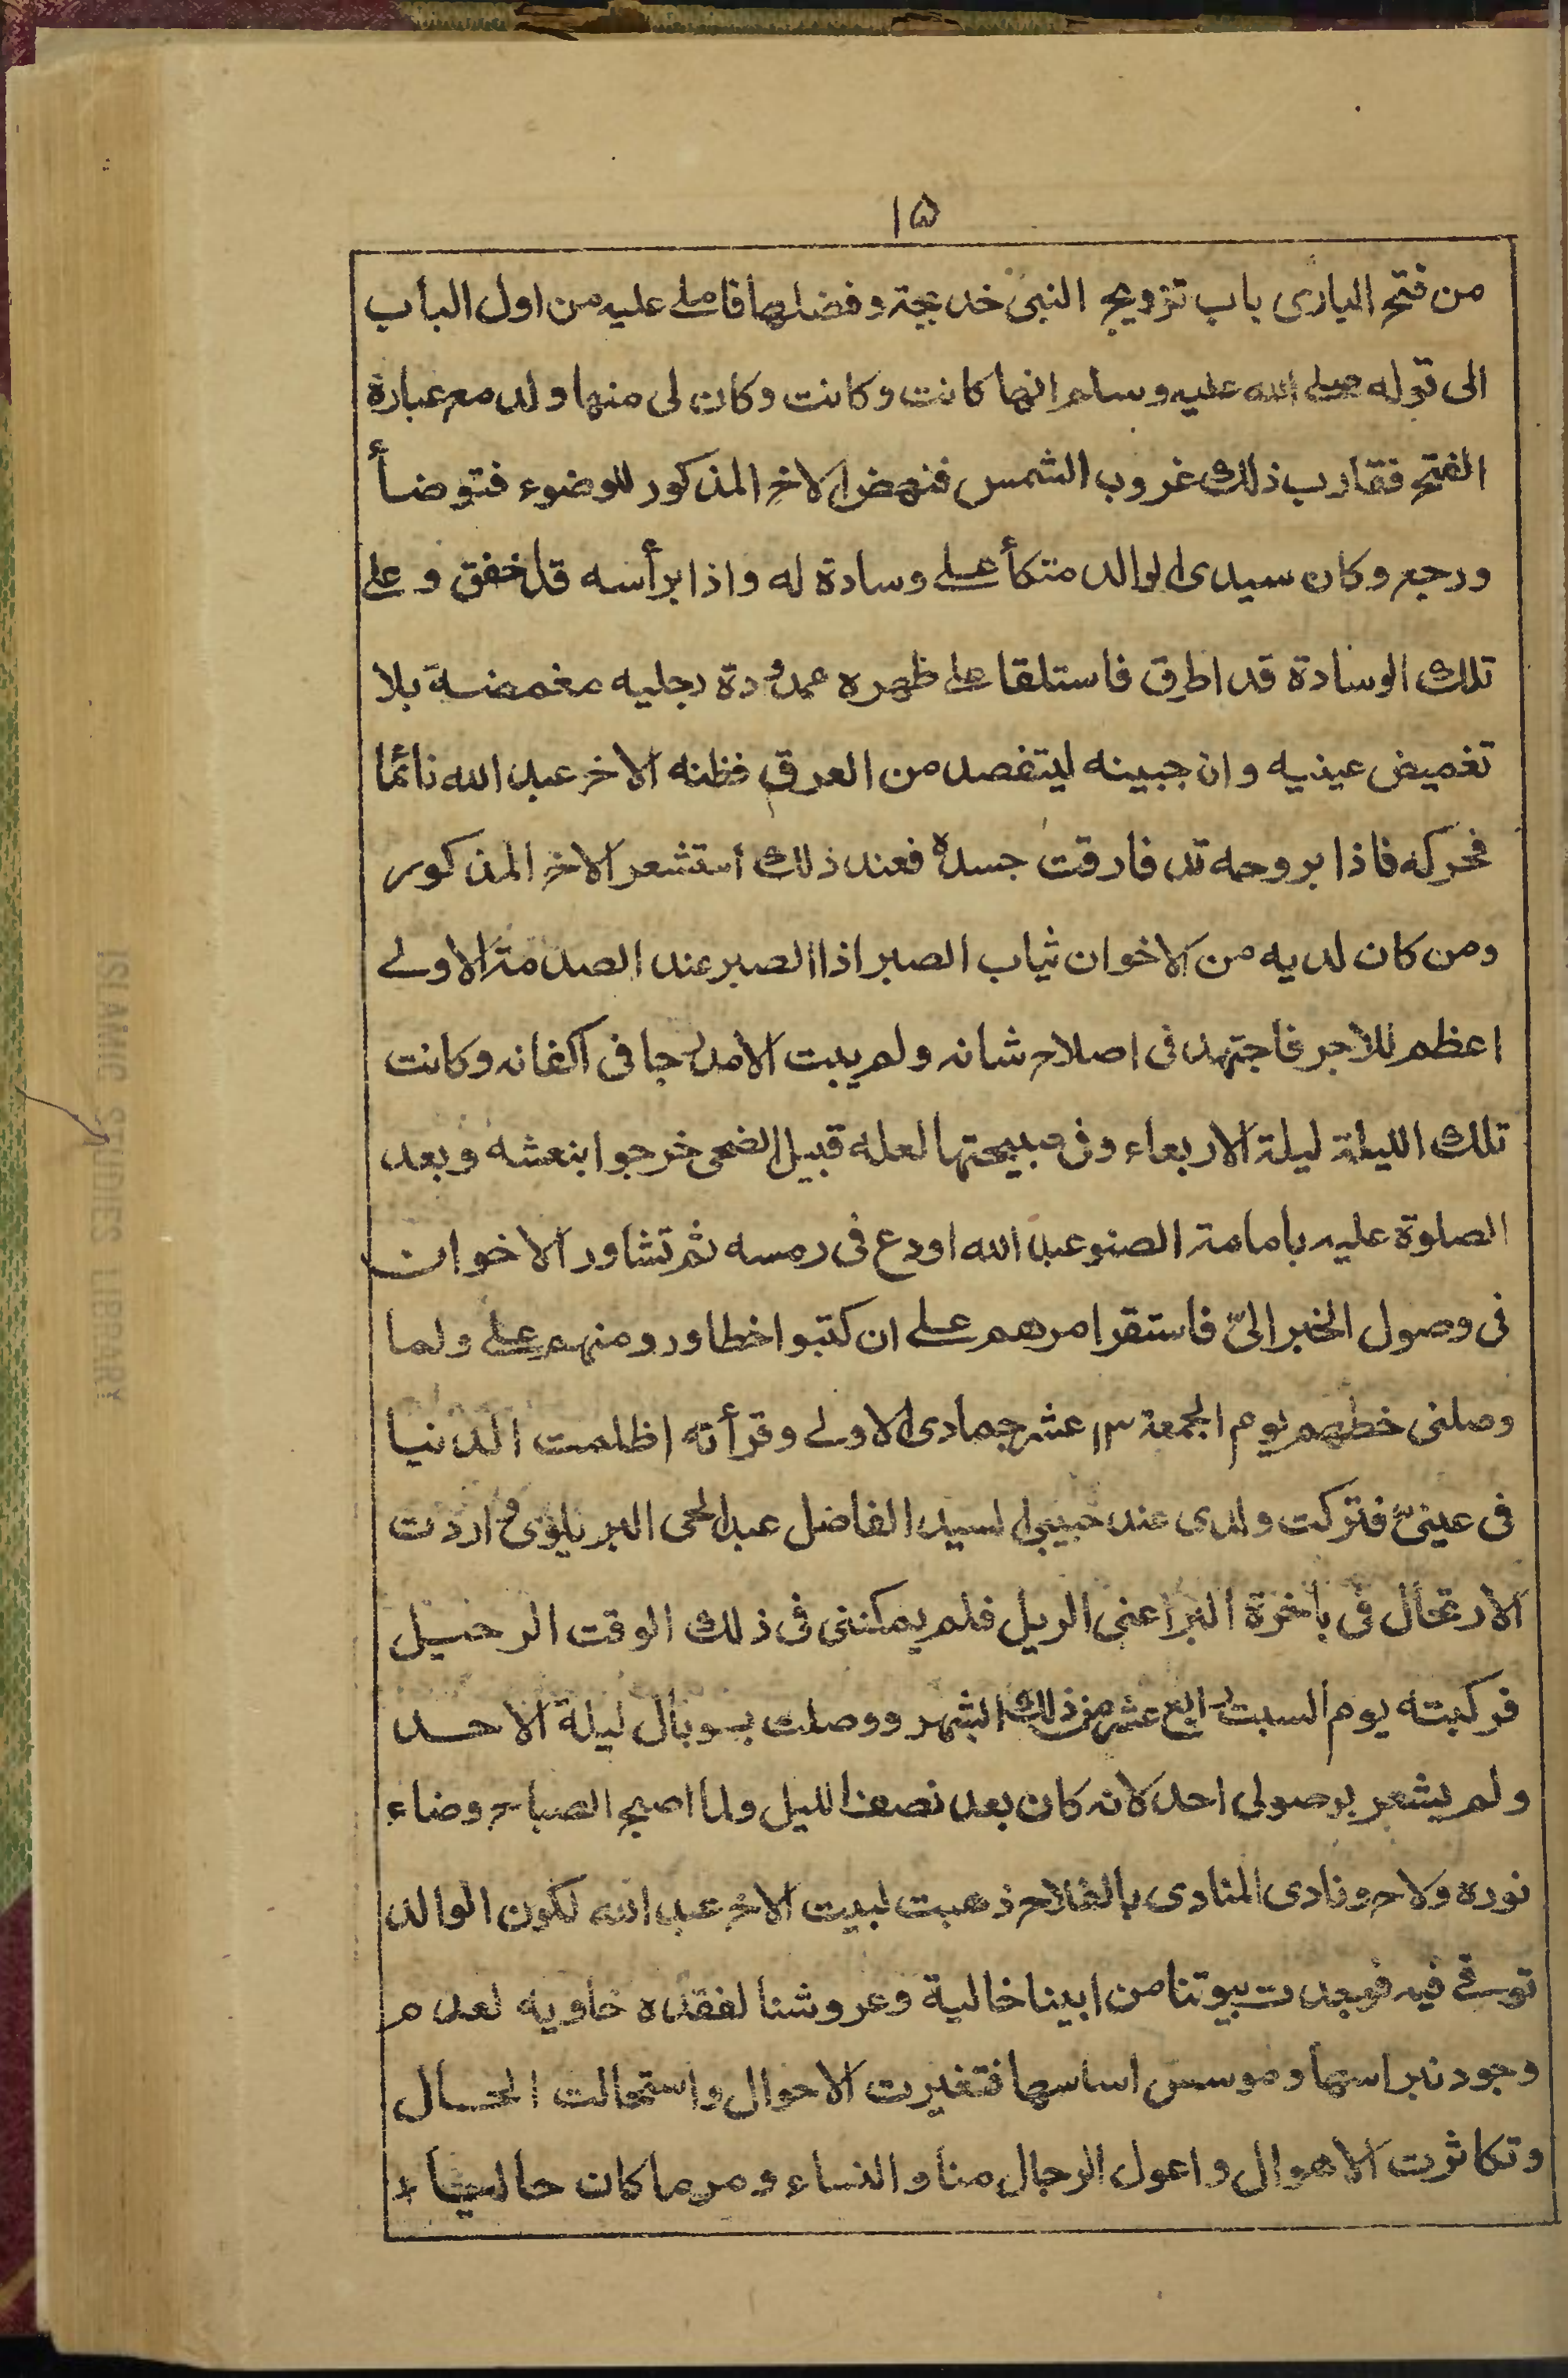 ١٥
من فتح البارى باب تزويج النبى خديجة وفضلها فاملى عليه من اول الباب
الى قوله صلى الله عليه وسلم انها كانت وكانت وكان لى منها ولد مع عبارة
الفتح فقارب ذلك غروب الشمس فنهض الاخ المذكور للوضوء فتوضأ
ورجع وكان سيدى الوالد متكأ على وسادة له واذا برأسه قد خفق وعلى
تلك الوسادة قد اطرق فاستلقا على ظهره ممدودة رجليه مغمضة بلا
تغميض عينيه وان جبينه ليتفصد من العرق فظنه الاخ عبد الله نائما
فحركه فاذا بروحه قد فارقت جسده فعند ذلك استشعر الاخ المذكور
ومن كان لديه من الاخوان ثياب الصبر اذ الصبر عند الصدمة الاولى
اعظم للاجر فاجتهد فى اصلاح شانه ولم يبت الا مدرجا فى اكفانه وكانت
تلك الليلة ليلة الاربعاء وفى صبيحتها لعله قبيل الضحى خرجوا بنعشه وبعد
الصلوة عليه بامامة الصنو عبد الله اودع فى رمسه ثم تشاور الاخوان
فى وصول الخبر الىّ فاستقر امرهم على ان كتبوا خطا ورد منهم علىّ ولما
وصلنى خطهم يوم الجمعة ١٣ عشر جمادى الاولى وقرأته اظلمت الدنيا
فى عينىّ فتركت ولدى عند حبيبى السيد الفاضل عبد الحى البريلوى واردت
الارتحال فى باخرة البر اعنى الريل فلم يمكننى فى ذلك الوقت الرحيل
فركبته يوم السبت رابع عشر من ذلك الشهر ووصلت بهوبال ليلة الاحد
ولم يشعر بوصولى احد لانه كان بعد نصف الليل ولما اصبح الصباح وضاء
نوره ولاح ونادى المنادى بالفلاح ذهبت لبيت الاخ عبد الله لكون الوالد
توفى فيه فوجدت بيوتنا من ابينا خالية وعروشنا لفقده خاويه لعدم
وجود نبراسها وموسس اساسها فتغيرت الاحوال واستحالت الحال
وتكاثرت الاهوال واعول الرجال منا والنساء ومر ما كان حاليا
ISLAMIC STUDIES LIBRARY